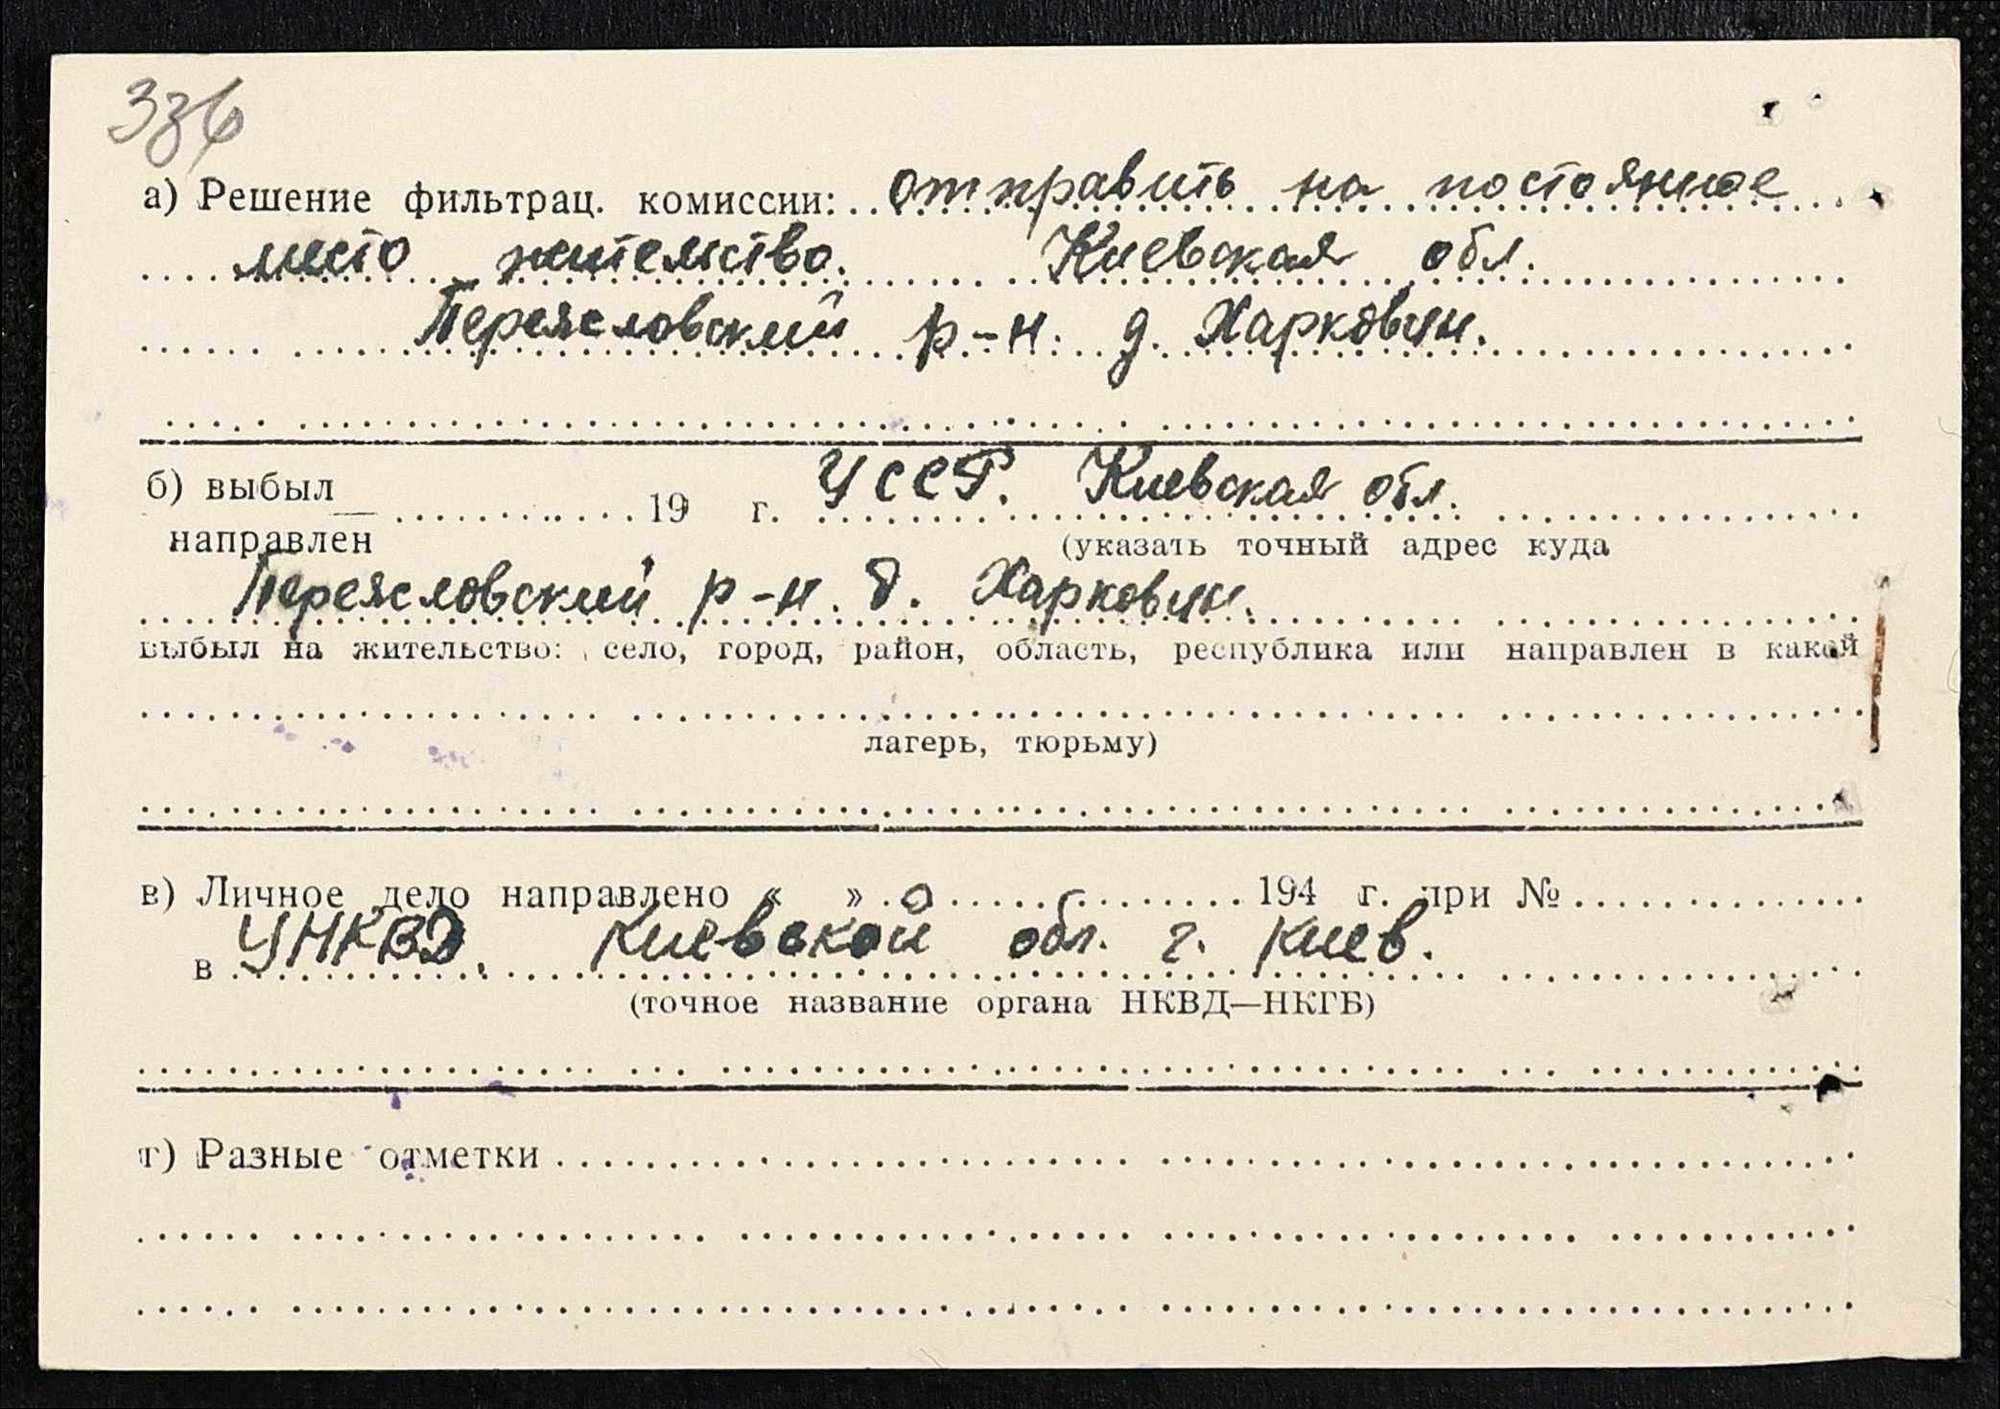 336
а) Решение фильтрац. комиссии: отправить на постоянное
место жительство. Киевская обл.
Переясловский р-н. д. Харковци.
б) выбыл 19 г. УССР. Киевская обл.
направлен (указать точный адрес куда
Переясловский р-н. д. Харковци.
выбыл на жительство: село, город, район, область, республика или направлен в какой
лагерь, тюрьму)
в) Личное дело направлено « » 194 г. при №
в УНКВД. Киевской обл. г. Киев.
(точное название органа НКВД—НКГБ)
г) Разные отметки